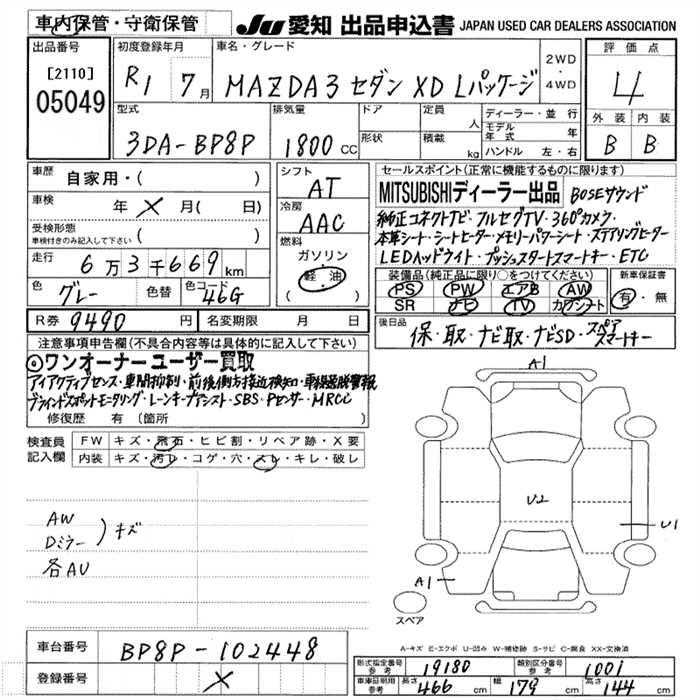 車内保管・守衛保管
JU 愛知 出品申込書 JAPAN USED CAR DEALERS ASSOCIATION
出品番号
[2110]
05049
初度登録年月
R1 7月
車名・グレード
MAZDA3 セダン XD Lパッケージ
2WD
・
4WD
評価点
4
外装 内装
B B
型式
3DA-BP8P
排気量
1800 CC
ドア
形状
定員 人
積載 kg
ディーラー・並行
モデル年式 年
ハンドル 左・右
車歴 自家用・( )
車検 年 × 月 ( 日)
受検形態
車検付きのみ記入して下さい ( )
走行 6万3千669 km
色 グレー 色替 色コード 46G
R券 9490 円 名変期限 月 日
シフト
AT
冷房
AAC
燃料
ガソリン
軽・油
( )
セールスポイント(正常に機能するものに限ります)
MITSUBISHIディーラー出品 BOSEサウンド
純正コネクトナビ・フルセグTV・360°カメラ・
本革シート・シートヒーター・メモリーパワーシート・ステアリングヒーター
LEDヘッドライト・プッシュスタートスマートキー・ETC
装備品(純正品に限り○をつけてください)
PS PW エアB AW
SR ナビ TV カワシート
新車保証書
有・無
後日品
保・取・ナビ取・ナビSD・スペアスマートキー
注意事項申告欄(不具合内容等は具体的に記入して下さい)
◎ワンオーナーユーザー買取
アイアクティブセンス・車間抑制・前後側方接近検知・車線逸脱警報
ブラインドスポットモニタリング・レーンキープアシスト・SBS・Pセンサー・MRCC
修復歴 有 (箇所 )
検査員
記入欄
FW キズ・飛石・ヒビ割・リペア跡・X要
内装 キズ・汚レ・コゲ・穴・スレ・キレ・破レ
AW
Dミラー ) キズ
各AU
A1
U2
U1
A1
スペア
A-キズ E-エクボ U-凹み W-補修跡 S-サビ C-腐食 XX-交換済
車台番号 BP8P-102448
登録番号 ×
形式指定番号 参考 19180
類別区分番号 参考 1001
車庫証明用 参考 長さ 466 cm 幅 179 cm 高さ 144 cm